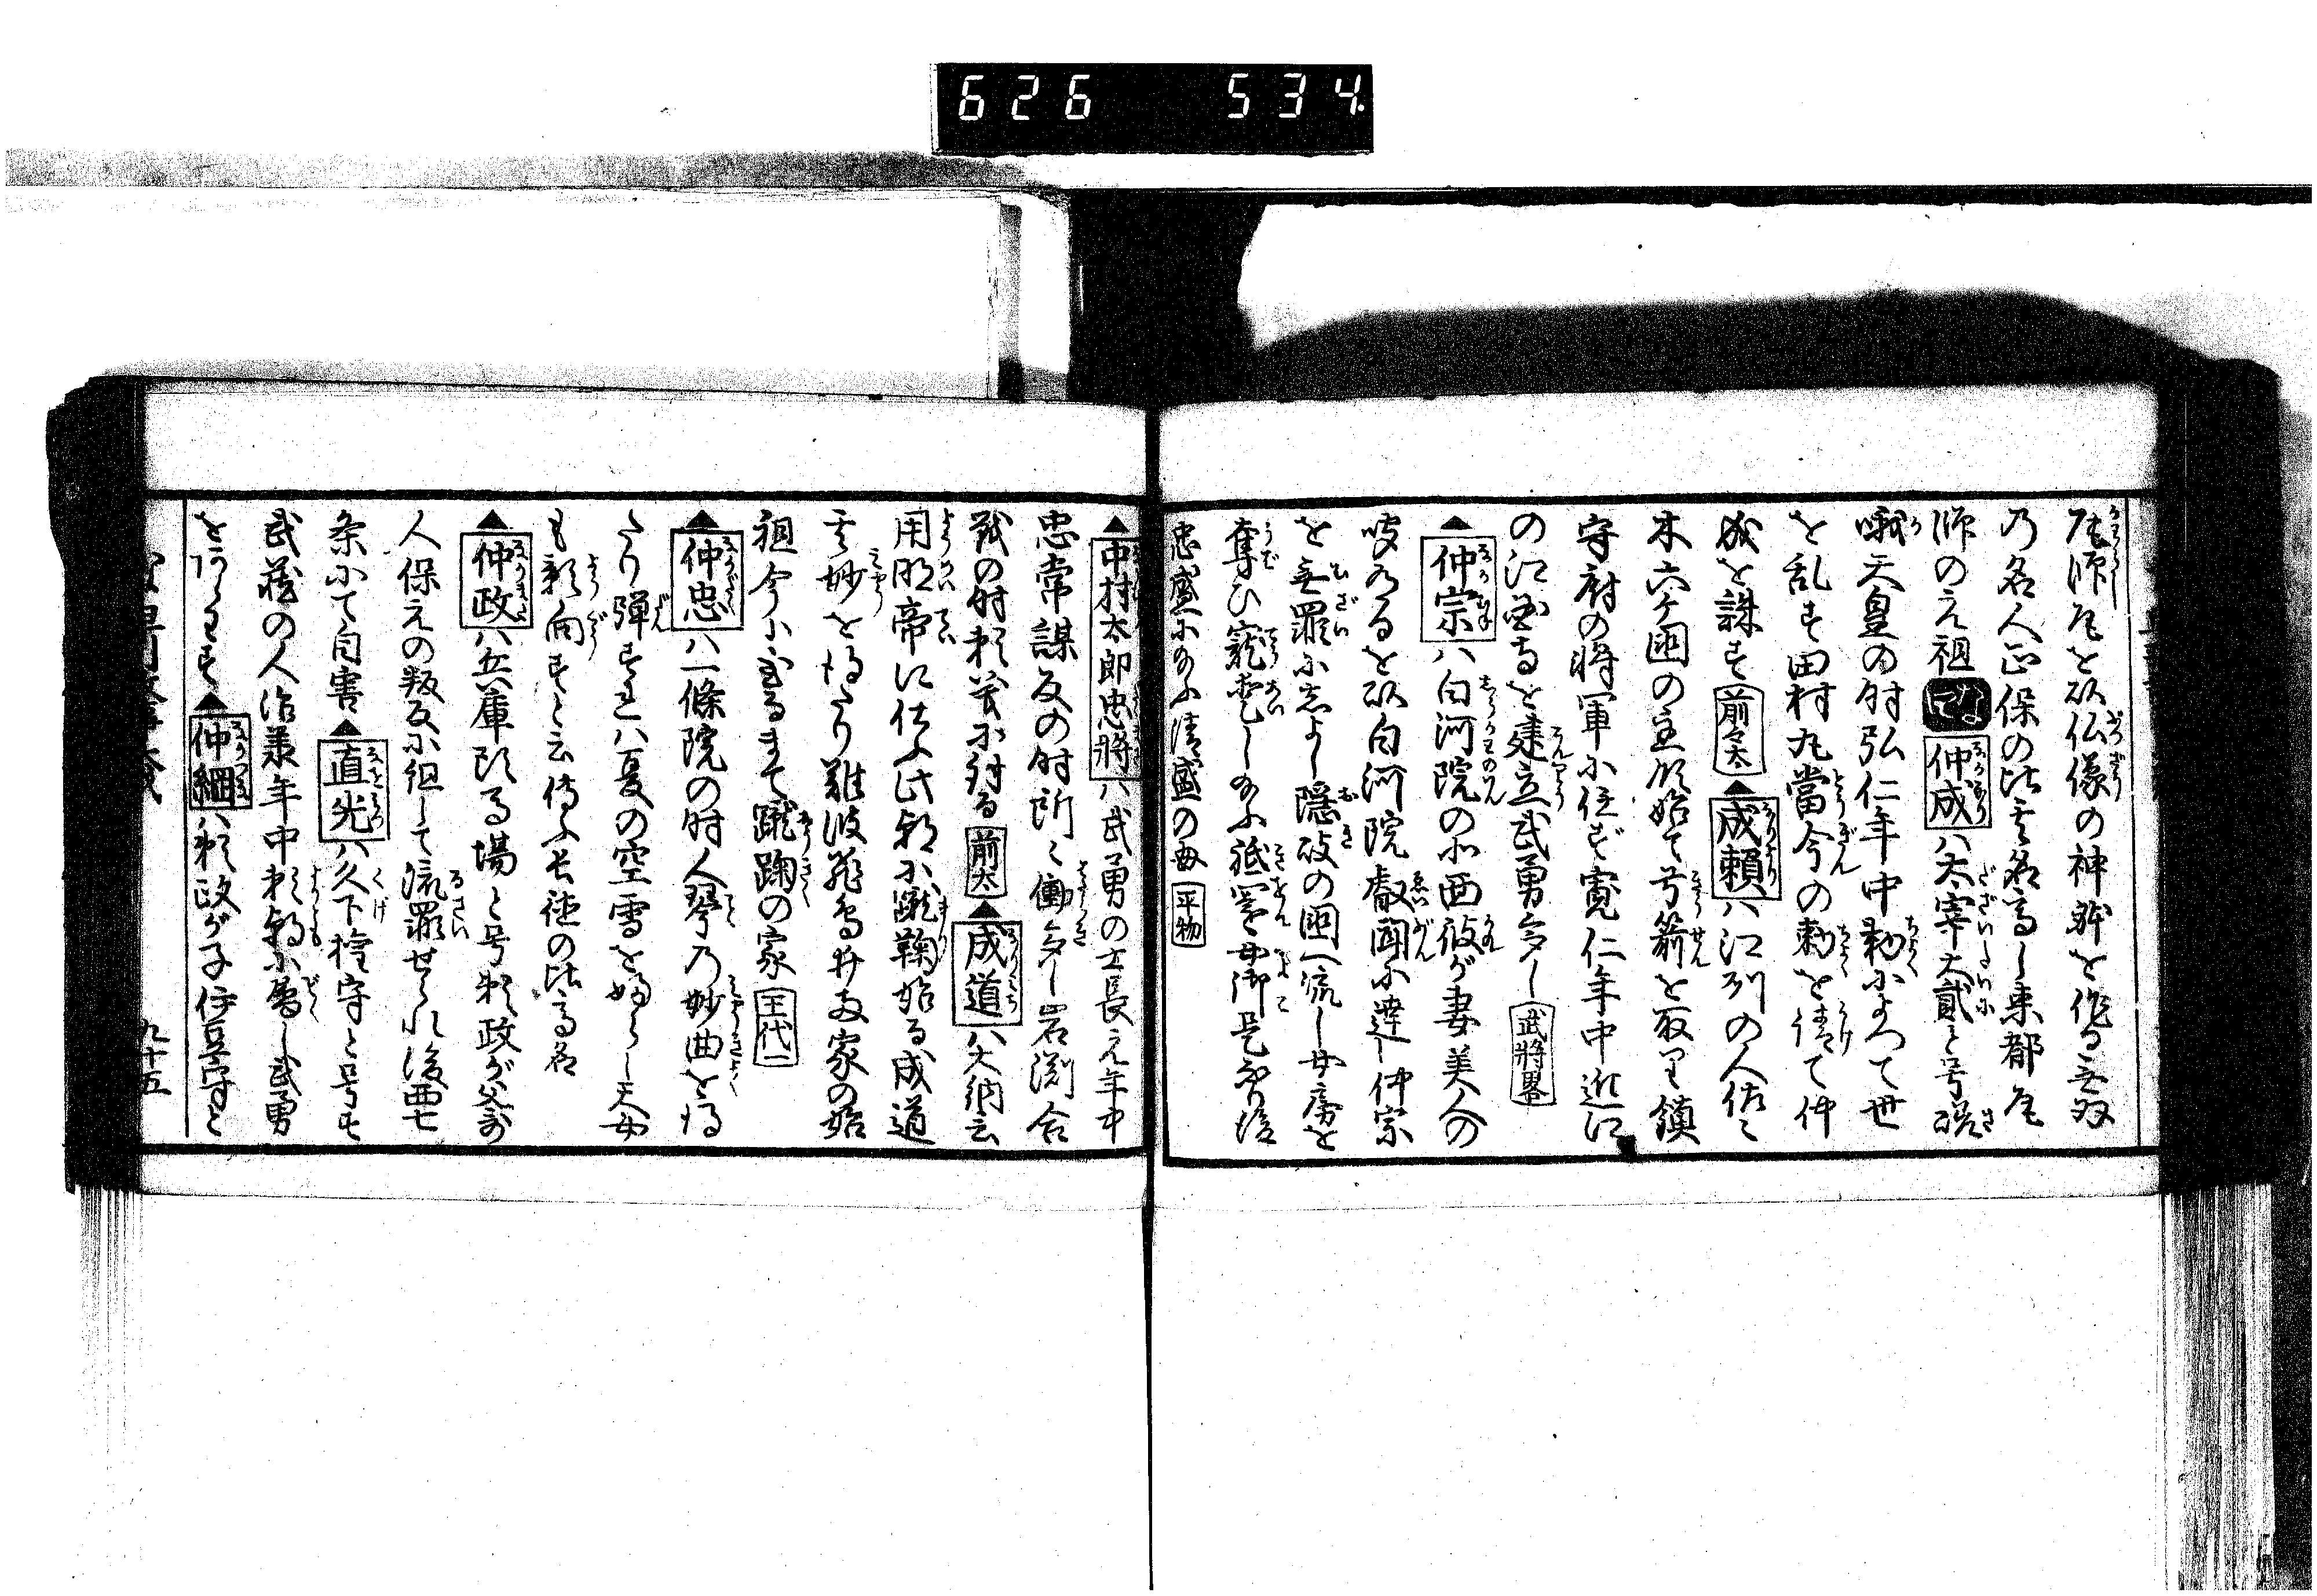 626 534
瓦師瓦を以仏像の神躰を作る無双
の名人正保の比其名高し東都瓦
師の元祖 な 仲成ハ太宰大貳と号嵯
峨天皇の時弘仁年中勅によつて世
を乱す田村丸當今の勅を請て仲
成を誅す 前々太 ▲成頼ハ江州の人佐々
木六ケ国の主 始て弓箭を取て鎮
守府の将軍に任ず寛仁年中近江
の江 寺を建立武勇多し 武將畧
▲仲宗ハ白河院の北面彼が妻美人の
聞あるを以白河院叡聞に達し仲宗
を無罪に志よし隠岐の国へ流し女房を
奪ひ寵愛し給ふ祇園女御是なり後
忠盛に給ふ清盛の母 平物
▲中村太郎忠將ハ武勇の士長元年中
忠常謀反の時所々働多し岩渕合
戦の時 前太 ▲成道ハ大納言
用明帝に仕ふ此 に蹴鞠始る成道
其妙を得たり難波飛鳥井両家の始
祖今に至るまて蹴鞠の家 王代一
▲仲忠ハ一條院の時人琴の妙曲を得
たり弾すれハ夏の空雪を降らし天女
も影向すと云傳ふ 比高名
▲仲政ハ兵庫頭馬場と号頼政が父
人保元の叛反に組して流罪せられ後西七
条にて自害 ▲直光ハ久下権守と号す
武蔵の人治承年中頼朝に属し武勇
をあらハす ▲仲綱ハ頼政が子伊豆守と
九十五